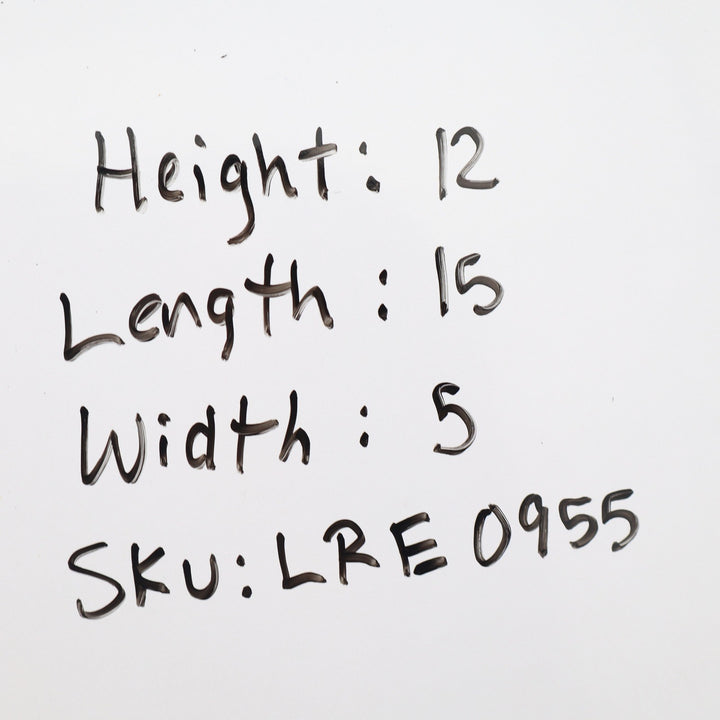 Height: 12
Length: 15
Width: 5
SKU: LRE 0955